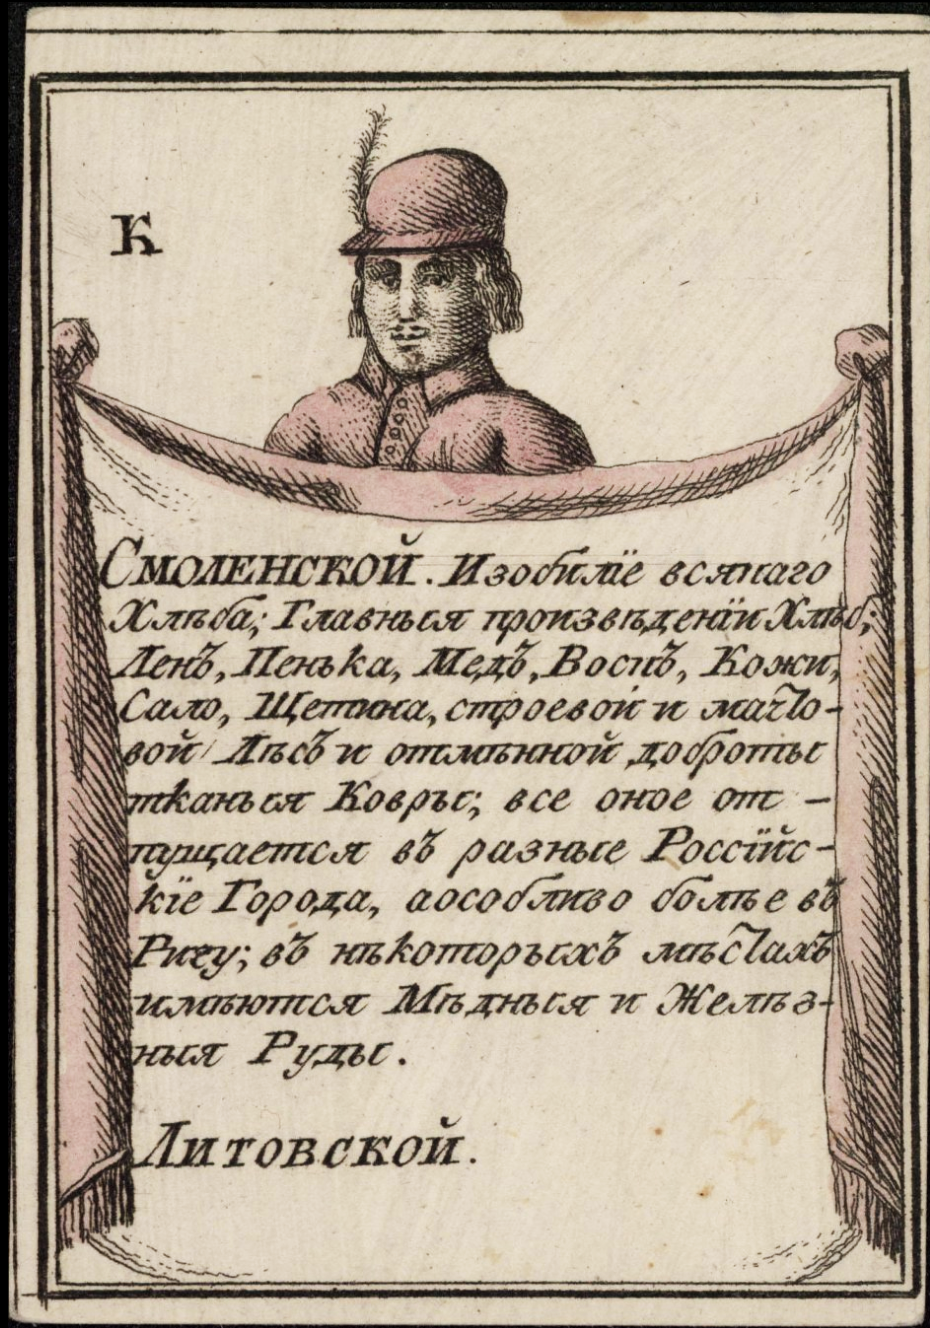 К
СМОЛЕНСКОЙ. Изобилїе всякаго
Хлѣба; Главныя произвѣденїи Хлѣб;
Ленъ, Пенька, Медъ, Воскъ, Кожи,
Сало, Щетина, строевой и мачто-
вой Лѣсъ и отмѣнной доброты
тканыя Ковры; все оное от-
пущается въ разные Россїйс-
кїе Города, аособливо болѣе въ
Ригу; въ нѣкоторыхъ мѣстахъ
имѣются Мѣдныя и Желѣз-
ныя Руды.
Литовской.